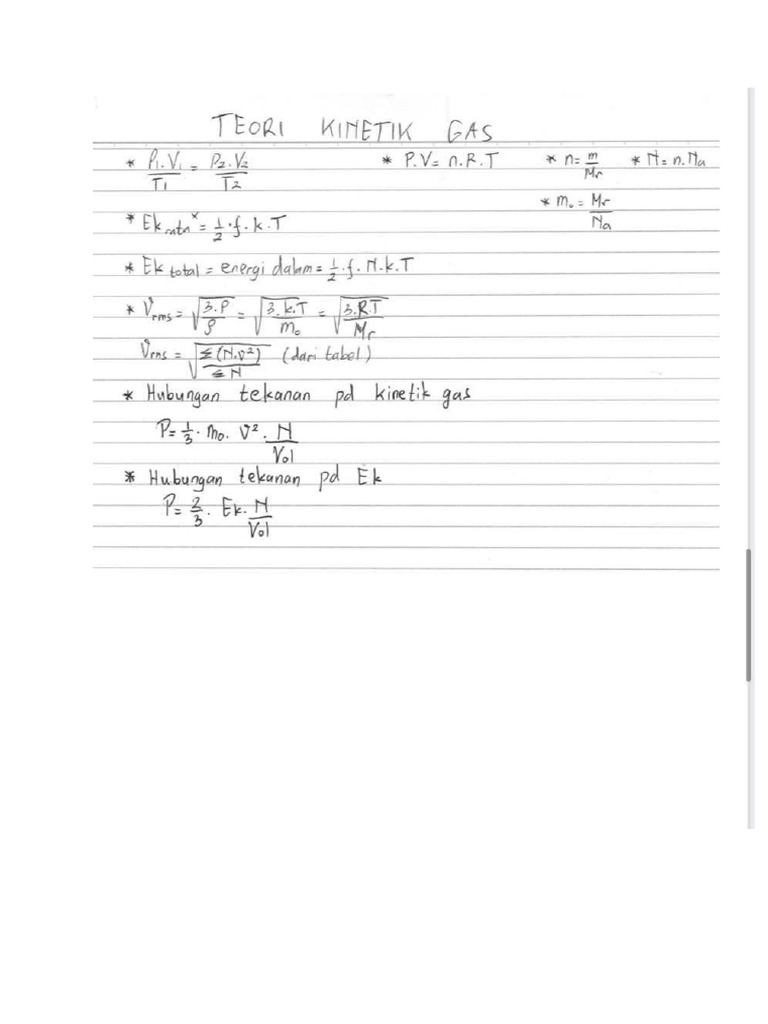 TEORI KINETIK GAS
* P₁.V₁/T₁ = P₂.V₂/T₂ * P.V = n.R.T * n = m/Mr * N = n.Na
* m₀ = Mr/Na
* Ek rata× = 1/2 . f. k. T
* Ek total = energi dalam = 1/2 . f. N. k. T
* Vrms = √(3.P/ρ) = √(3.k.T/m₀) = √(3.R.T/Mr)
Vrms = √(Σ(N.v²)/ΣN) (dari tabel)
* Hubungan tekanan pd kinetik gas
P = 1/3 . m₀. v² . N/Vol
* Hubungan tekanan pd Ek
P = 2/3 . Ek. N/Vol